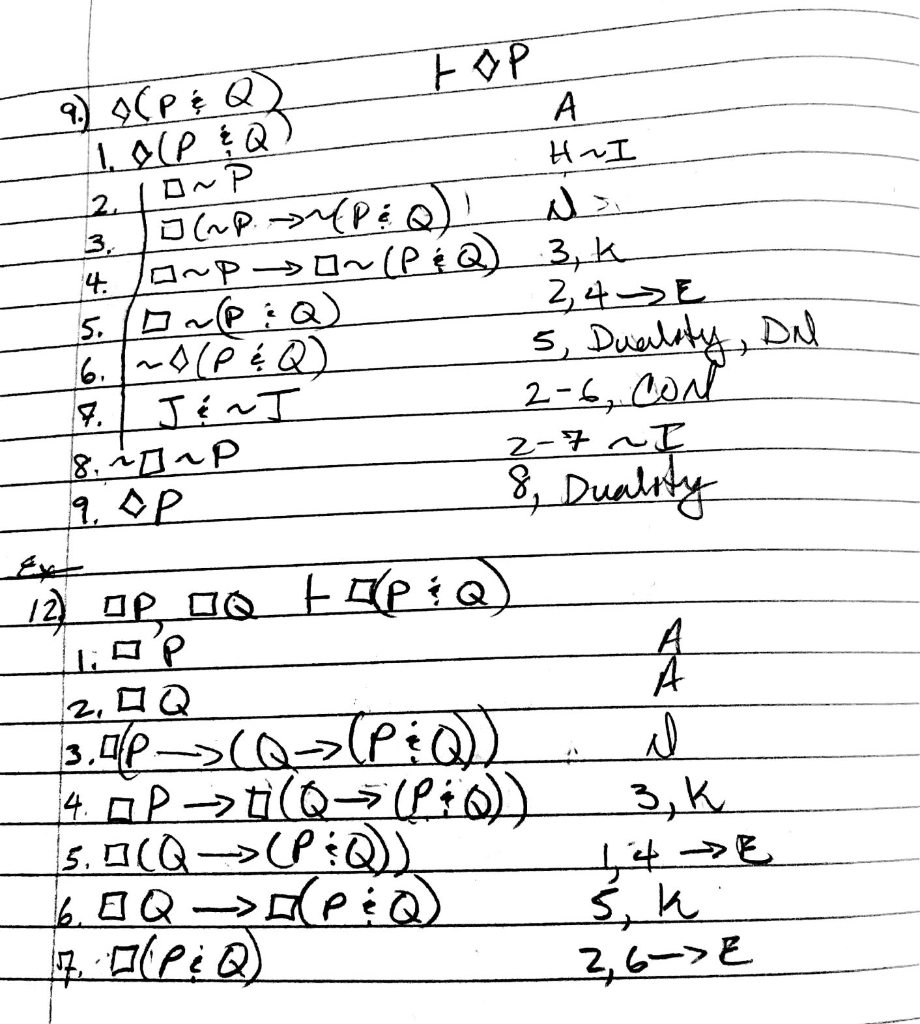 9.) ◇(P & Q) ⊢ ◇P
1. ◇(P & Q) A
2. □~P H~I
3. □(~P → ~(P & Q)) N
4. □~P → □~(P & Q) 3, K
5. □~(P & Q) 2,4 →E
6. ~◇(P & Q) 5, Duality, DN
7. J & ~J 2-6, CON
8. ~□~P 2-7 ~I
9. ◇P 8, Duality
Ex
12) □P, □Q ⊢ □(P & Q)
1. □P A
2. □Q A
3. □(P → (Q → (P & Q)) N
4. □P → □(Q → (P & Q)) 3, K
5. □(Q → (P & Q)) 1,4 →E
6. □Q → □(P & Q) 5, K
7. □(P & Q) 2,6 →E